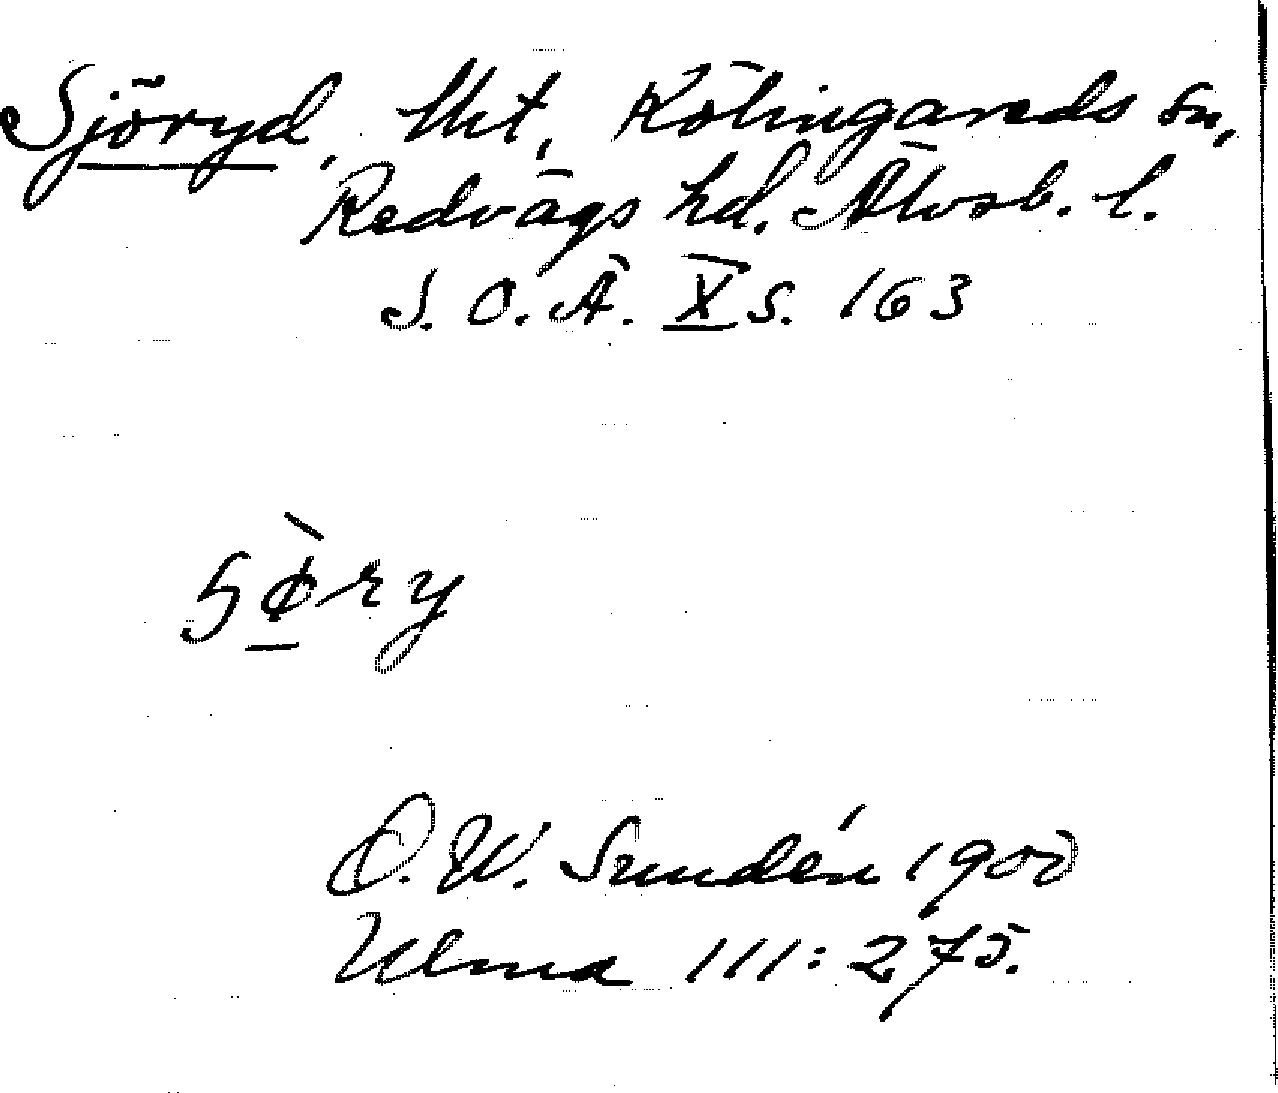 Sjöryd, Utt, Kölingareds sn,
Redvägs hd. Älvsb. l.
S. O. Ä. X s. 163
sø̀ry
O. W. Sundén 1900
Ulma 111:275.